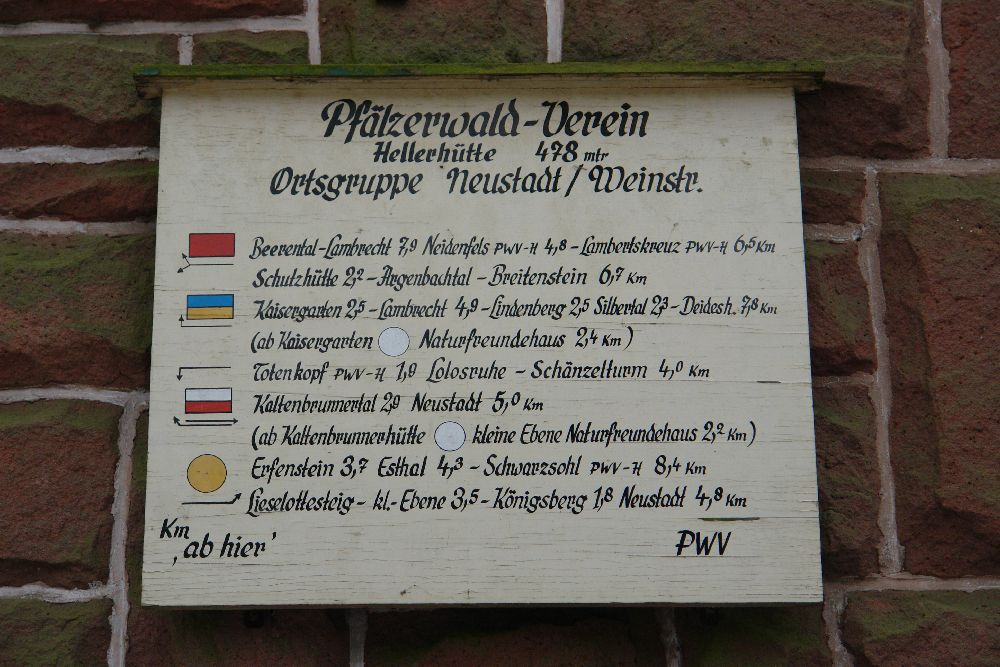 Pfälzerwald-Verein
Hellerhütte 478 mtr
Ortsgruppe Neustadt/Weinstr.
Beerental-Lambrecht 7,9 Neidenfels PWV-H 4,8-Lambertskreuz PWV-H 6,5 Km
Schutzhütte 2,2-Argenbachtal-Breitenstein 6,7 Km
Kaisergarten 2,5-Lambrecht 4,9-Lindenberg 2,5 Silbertal 2,3-Deidesh. 7,8 Km
(ab Kaisergarten Naturfreundehaus 2,4 Km)
Totenkopf PWV-H 1,9 Lolosruhe - Schänzelturm 4,0 Km
Kaltenbrunnertal 2,9 Neustadt 5,0 Km
(ab Kaltenbrunnerhütte kleine Ebene Naturfreundehaus 2,2 Km)
Erfenstein 3,7 Esthal 4,3-Schwarzsohl PWV-H 8,4 Km
Lieselottesteig-kl.-Ebene 3,5-Königsberg 1,8 Neustadt 4,8 Km
Km
,ab hier'
PWV